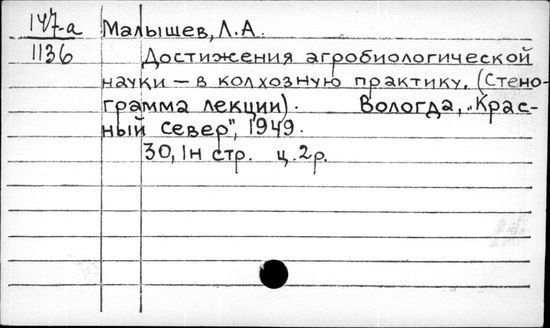 147-а
1136
Малышев, Л.А.
Достижения агробиологической
науки – в колхозную практику. (Стено-
грамма лекции). Вологда, „Крас-
ный Север", 1949.
30, 1н стр. ц. 2р.